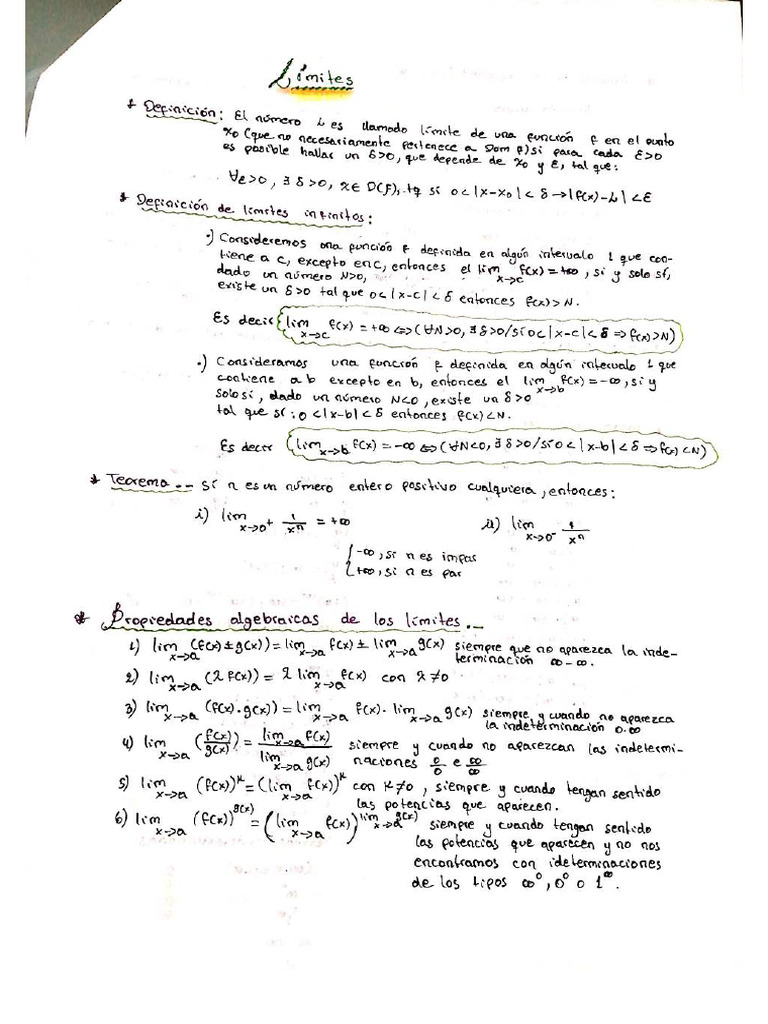 Límites
* Definición: El número L es llamado límite de una función f en el punto
x₀ (que no necesariamente pertenece a Dom f) si para cada ε>0
es posible hallar un δ>0, que depende de x₀ y ε, tal que:
∀ε>0, ∃ δ>0, x∈D(f), tq si 0<|x-x₀|<δ→|f(x)-L|<ε
* Definición de límites infinitos:
•) Consideremos una función f definida en algún intervalo I que con-
tiene a c, excepto en c, entonces el lim x→c f(x)=+∞, si y solo sí,
dado un número N>0,
existe un δ>0 tal que 0<|x-c|<δ entonces f(x)>N.
Es decir (lim x→c f(x)=+∞⇔(∀N>0, ∃δ>0/sí 0<|x-c|<δ⇒f(x)>N)
•) Consideramos una función f definida en algún intervalo I que
contiene a b excepto en b, entonces el lim x→b f(x)=-∞, si y
solo sí, dado un número N<0, existe un δ>0
tal que sí: 0<|x-b|<δ entonces f(x)<N.
Es decir (lim x→b f(x)=-∞⇔(∀N<0, ∃δ>0/sí 0<|x-b|<δ⇒f(x)<N)
* Teorema.-- Sí n es un número entero positivo cualquiera, entonces:
i) lim x→0⁺ 1/xⁿ = +∞ ii) lim x→0⁻ 1/xⁿ
{-∞, si n es impar
+∞, si n es par
* Propiedades algebraicas de los límites.--
1) lim x→a (f(x)±g(x))=lim x→a f(x) ± lim x→a g(x) siempre que no aparezca la inde-
terminación ∞-∞.
2) lim x→a (λ f(x)) = λ lim x→a f(x) con λ≠0
3) lim x→a (f(x)·g(x))=lim x→a f(x)·lim x→a g(x) siempre y cuando no aparezca
la indeterminación 0·∞
4) lim x→a (f(x)/g(x))=lim x→a f(x)/lim x→a g(x) siempre y cuando no aparezcan las indetermi-
naciones 0/0 e ∞/∞
5) lim x→a (f(x))ᵏ=(lim x→a f(x))ᵏ con k≠0, siempre y cuando tengan sentido
las potencias que aparecen.
6) lim x→a (f(x))^g(x)=(lim x→a f(x))^lim x→a g(x) siempre y cuando tengan sentido
las potencias que aparecen y no nos
encontramos con ideterminaciones
de los tipos ∞⁰, 0⁰ o 1^∞.